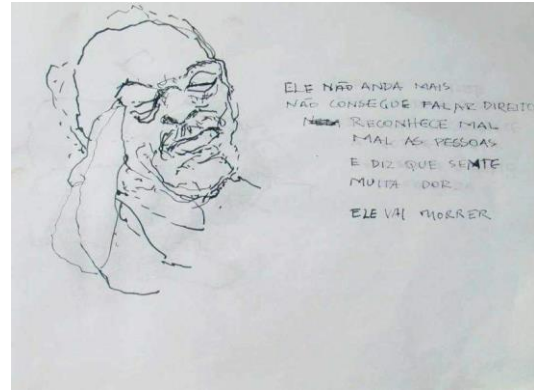 ELE NÃO ANDA MAIS
NÃO CONSEGUE FALAR DIREITO
RECONHECE MAL
MAL AS PESSOAS
E DIZ QUE SENTE
MUITA DOR
ELE VAI MORRER